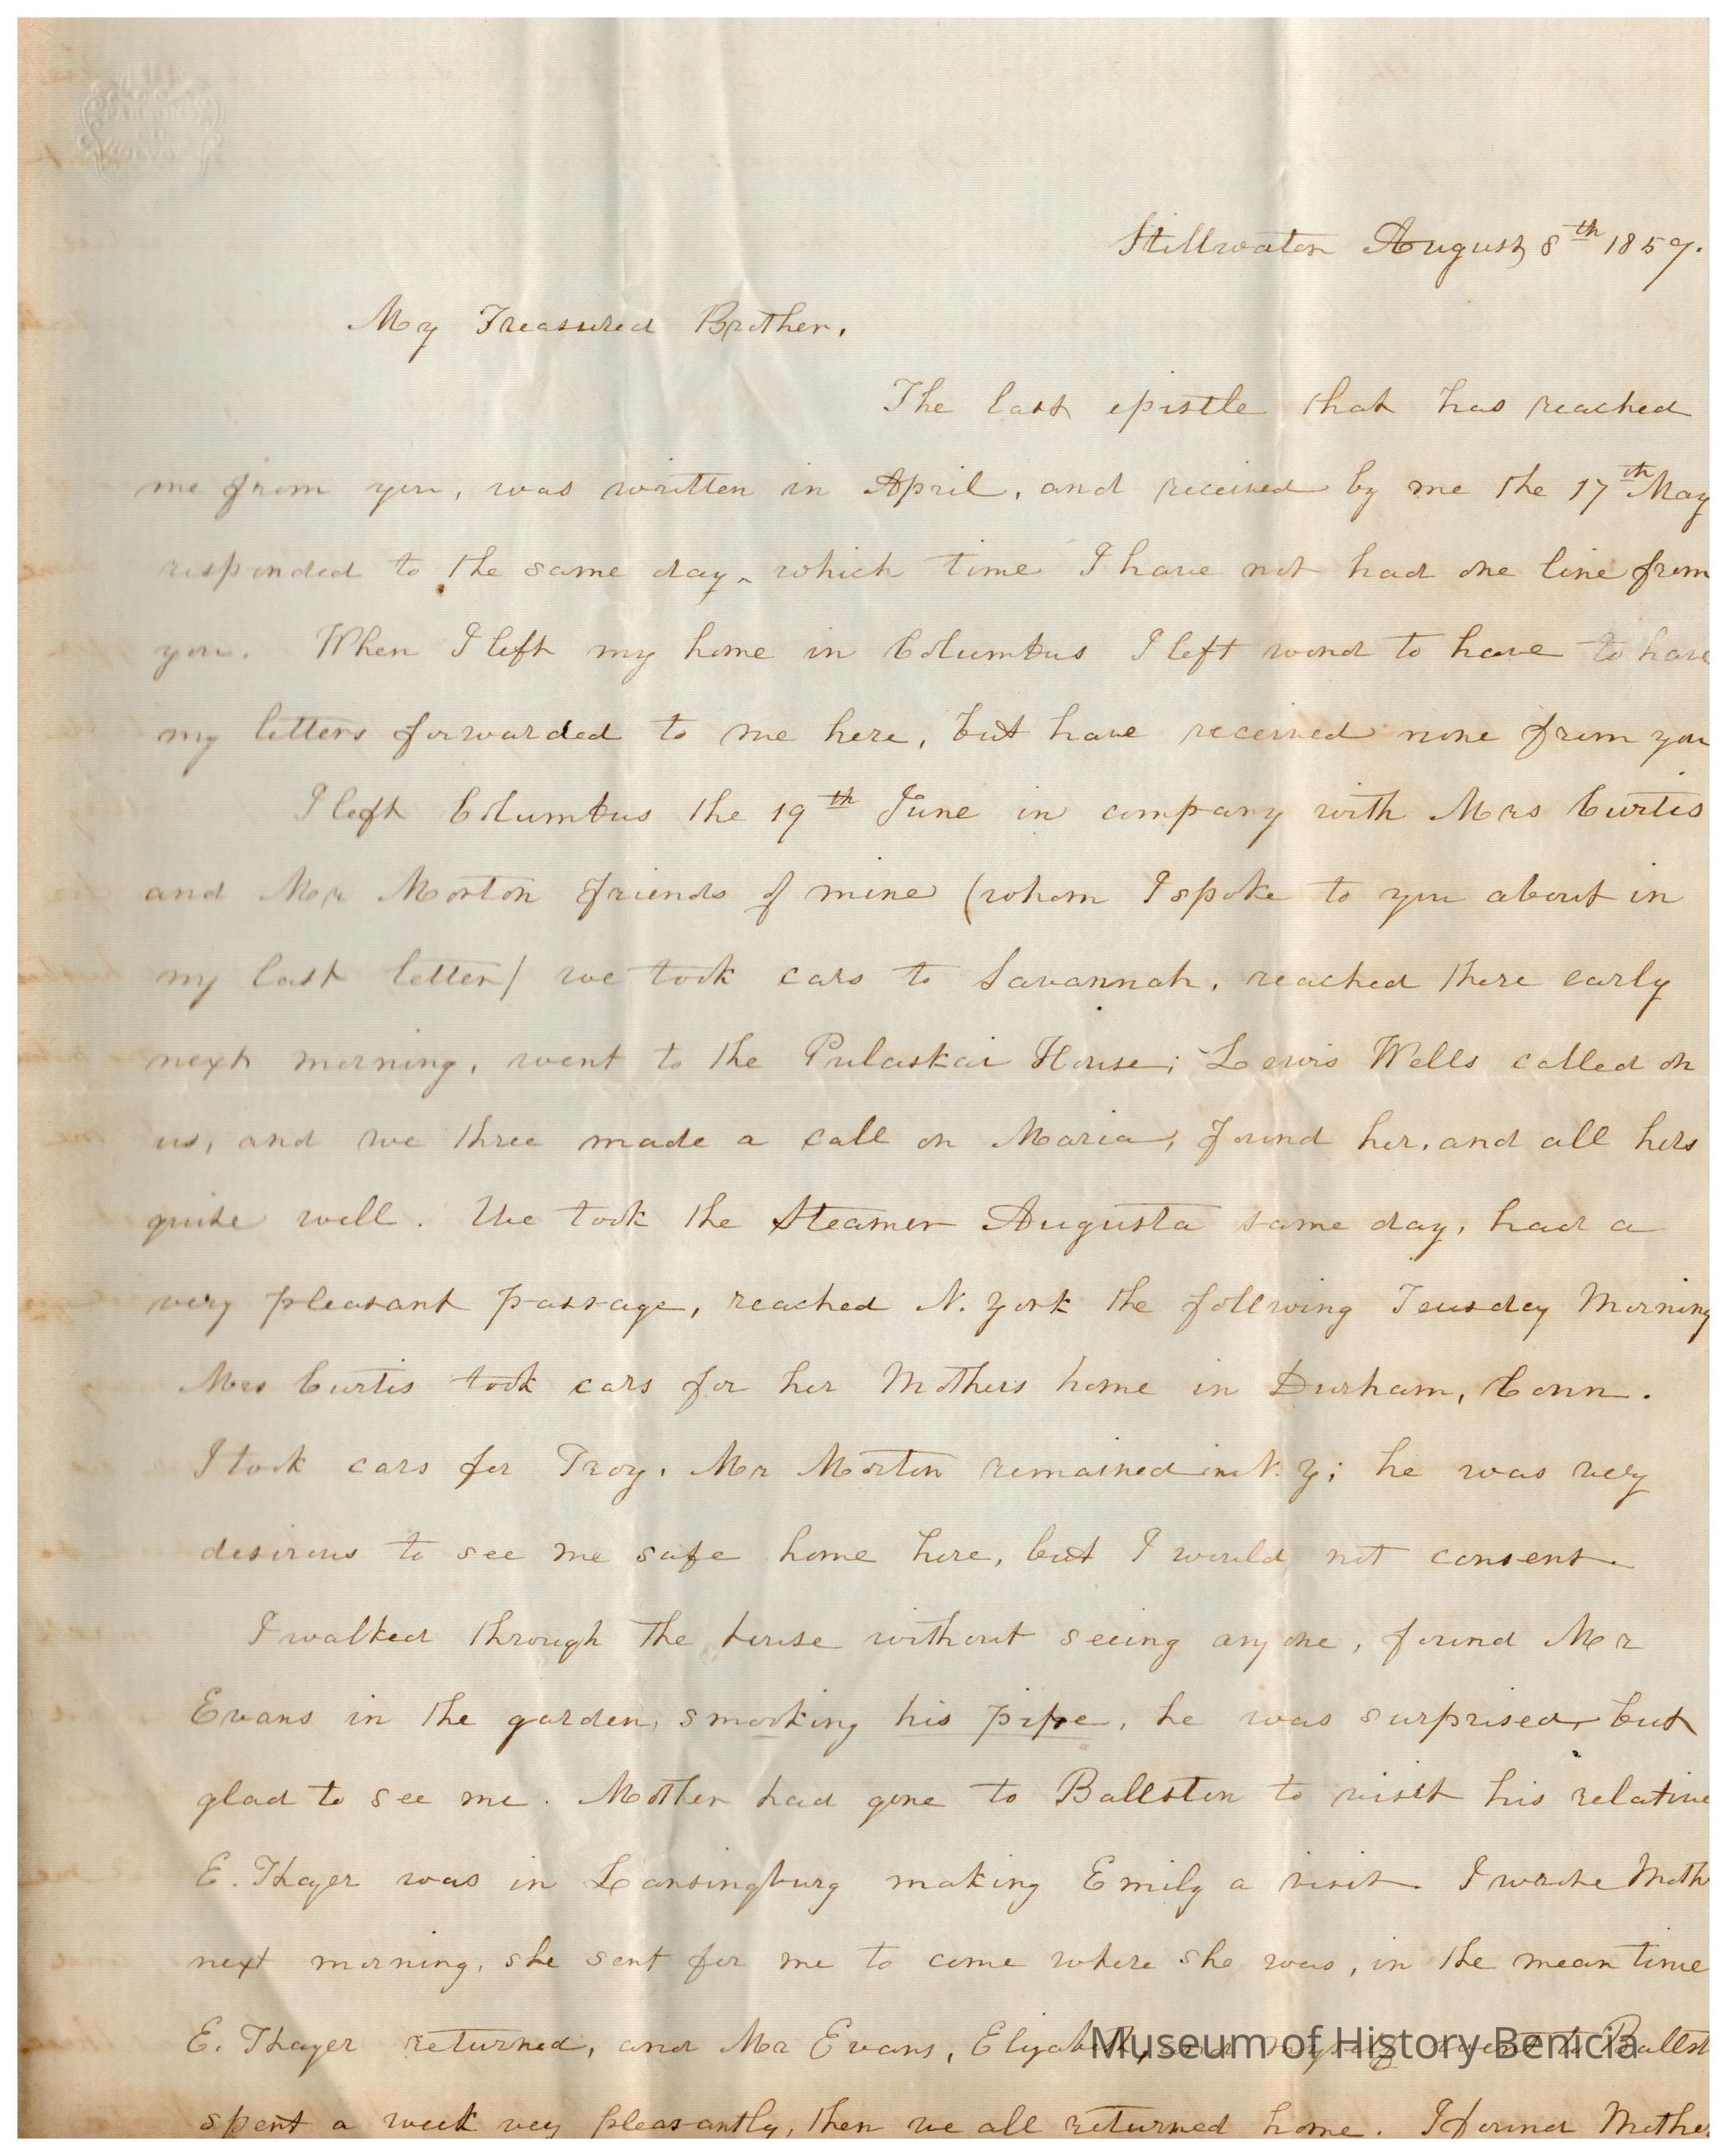 Stillwater August 8th 1859.
My Treasured Brother,
The last epistle that has reached
me from you, was written in April, and received by me the 17th May
responded to the same day, which time I have not had one line from
you. When I left my home in Columbus I left word to have to have
my letters forwarded to me here, but have received none from you
I left Columbus the 19th June in company with Mrs Curtis
and Mr Morton friends of mine (whom I spoke to you about in
my last letter) we took cars to Savannah, reached there early
next morning, went to the Pulaskai House; Lewis Wells called on
us, and we three made a call on Maria, found her, and all hers
quite well. We took the Steamer Augusta same day, had a
very pleasant passage, reached N. York the following Teusday Morning
Mrs Curtis took cars for her Mothers home in Durham, Conn.
I took cars for Troy, Mr Morton remained in N. Y; he was very
desirous to see me safe home here, but I would not consent.
I walked through the house without seeing any one, found Mr
Evans in the garden, smooking his pipe, he was surprised, but
glad to see me. Mother had gone to Ballston to visit his relative
E. Thayer was in Lansingburg making Emily a visit. I wrote Moth
next morning, she sent for me to come where she was, in the mean time
E. Thayer returned, and Mr Evans, Elizabeth, and myself went to Ballst
spent a week very pleasantly, then we all returned home. I found Mother
Museum of History Benicia